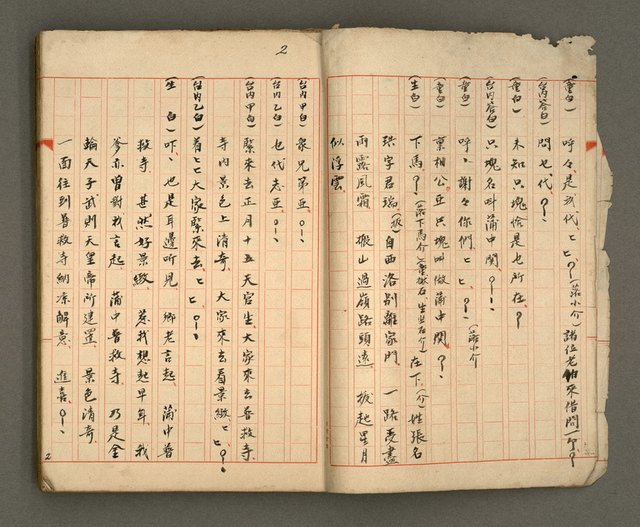 （童白）呼々、是我代、ヒ、ヒ、（落小介）諸位老伯來借問一下、
（台內答白）問乜代、
（童白）未知只塊恰是乜所在、
（台內答白）只塊名叫蒲中関、
（童白）呼、謝々你們、ヒ、ヒ、（落小介）
（童白）稟相公、只塊叫做蒲中関、
（生白）下馬、（落下馬介）在下、（介）姓張名
珙字君瑞（板）自西洛別離家門 一路受盡
雨露風霜 搬山過嶺路頭遠、披起星月
似浮雲、
2
（台內甲白）衆兄弟
（台內乙白）乜代志
（台內甲白）緊來去正月十五天官生、大家來去普救寺、
寺內景色上清奇、大家來去看景緻、ヒ、ヒ、
（台內乙白）着ヒヒ大家緊來去、ヒ、ヒ、
（生白）吓、乜是耳邊听見 鄉老言起、蒲中普
救寺、甚然好景緻、惹我想起早年、我
爹亦曽對我言起 蒲中普救寺、乃是金
輪天子武則天皇帝所建置、景色清奇、
一面往到普救寺納凉解意、進喜、
2